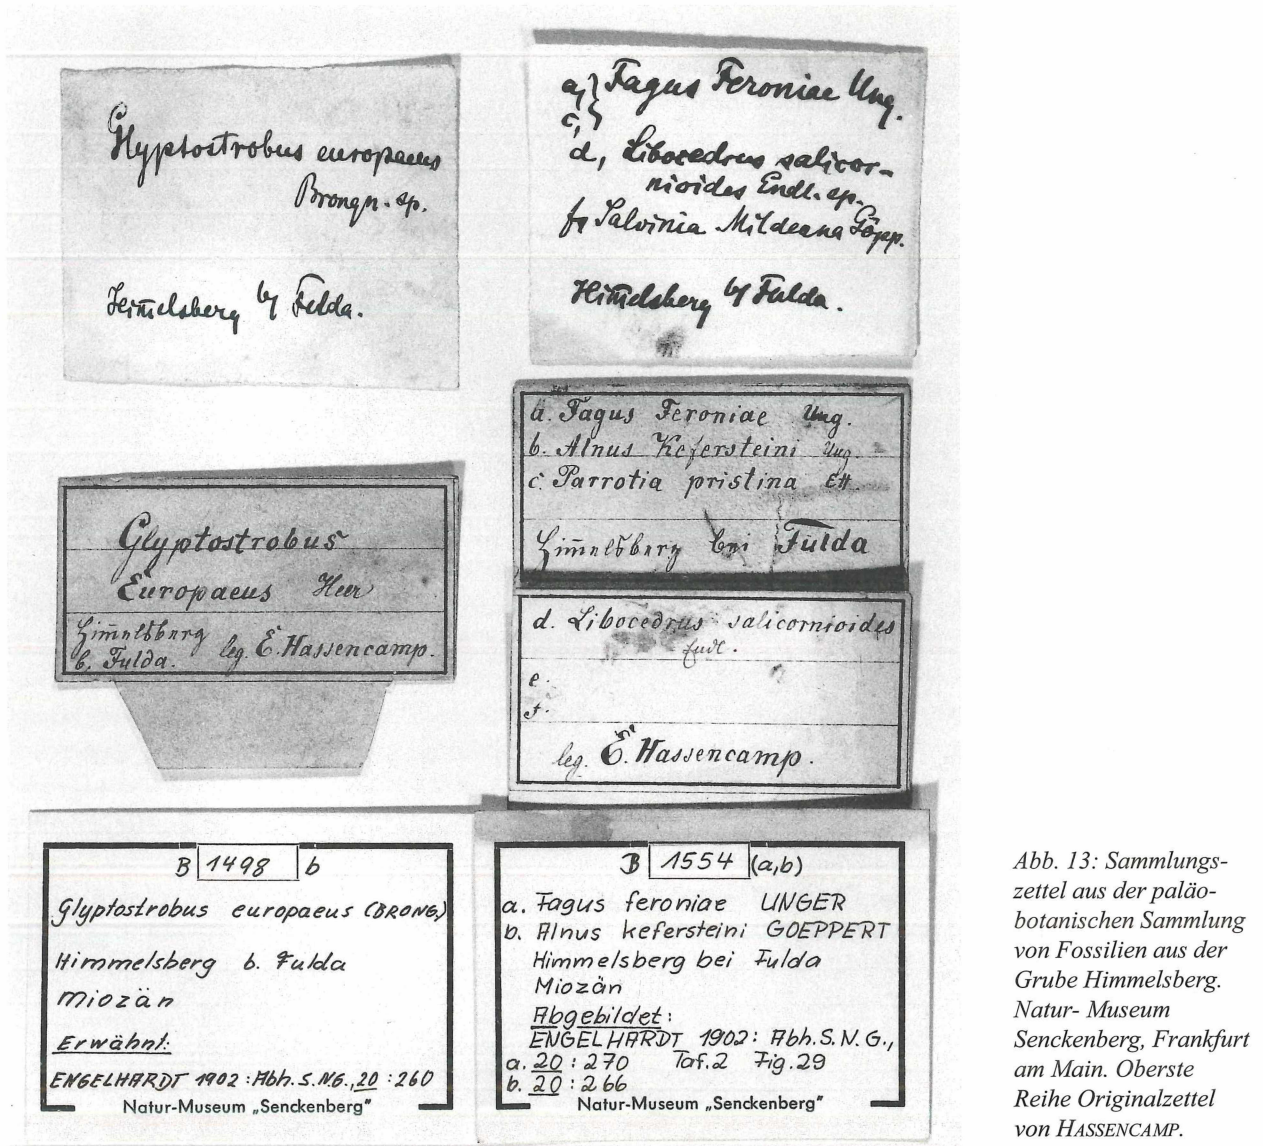 Glyptostrobus europaeus
Brongn. sp.
Him̅elsberg b/ Fulda.
a,} Fagus Feroniae Ung.
c,}
d, Libocedrus salicor-
nioides Endl. sp.
f, Salvinia Mildeana Göpp.
Him̅elsberg b/ Fulda.
Glyptostrobus
Europaeus Heer
Him̅elsberg
b. Fulda. leg. E. Hassencamp.
a. Fagus Feroniae Ung.
b. Alnus Kefersteini Ung.
c. Parrotia pristina Ett.
Him̅elsberg bei Fulda
d. Libocedrus salicornioides
Endl.
e.
f.
leg. E. Hassencamp.
B 1498 b
Glyptostrobus europaeus (BRONG.)
Himmelsberg b. Fulda
Miozän
Erwähnt:
ENGELHARDT 1902: Abh. S. NG., 20 : 260
Natur-Museum „Senckenberg"
B 1554 (a,b)
a. Fagus feroniae UNGER
b. Alnus kefersteini GOEPPERT
Himmelsberg bei Fulda
Miozän
Abgebildet:
ENGELHARDT 1902: Abh. S. N. G.,
a. 20 : 270 Taf.2 Fig.29
b. 20 : 266
Natur-Museum „Senckenberg"
Abb. 13: Sammlungs-
zettel aus der paläo-
botanischen Sammlung
von Fossilien aus der
Grube Himmelsberg.
Natur- Museum
Senckenberg, Frankfurt
am Main. Oberste
Reihe Originalzettel
von HASSENCAMP.